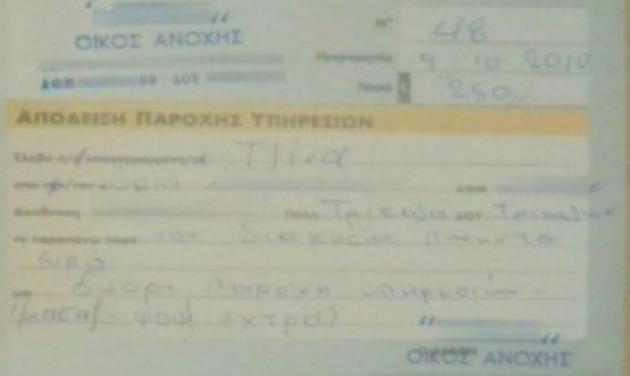 ΟΙΚΟΣ ΑΝΟΧΗΣ
ΑΦΜ ΔΟΥ
Ν° 48
Ημερομηνία 9 10 2010
Ποσό € 250,,
ΑΠΟΔΕΙΞΗ ΠΑΡΟΧΗΣ ΥΠΗΡΕΣΙΩΝ
Έλαβα Τζίνα
από ΑΦΜ
Διεύθυνση Πόλη Τρίκαλα ΔΟΥ
το παραπάνω ποσό των διακόσια πενήντα
Ευρώ
για παροχή υπηρεσιών -
εχτρα)
ΟΙΚΟΣ ΑΝΟΧΗΣ